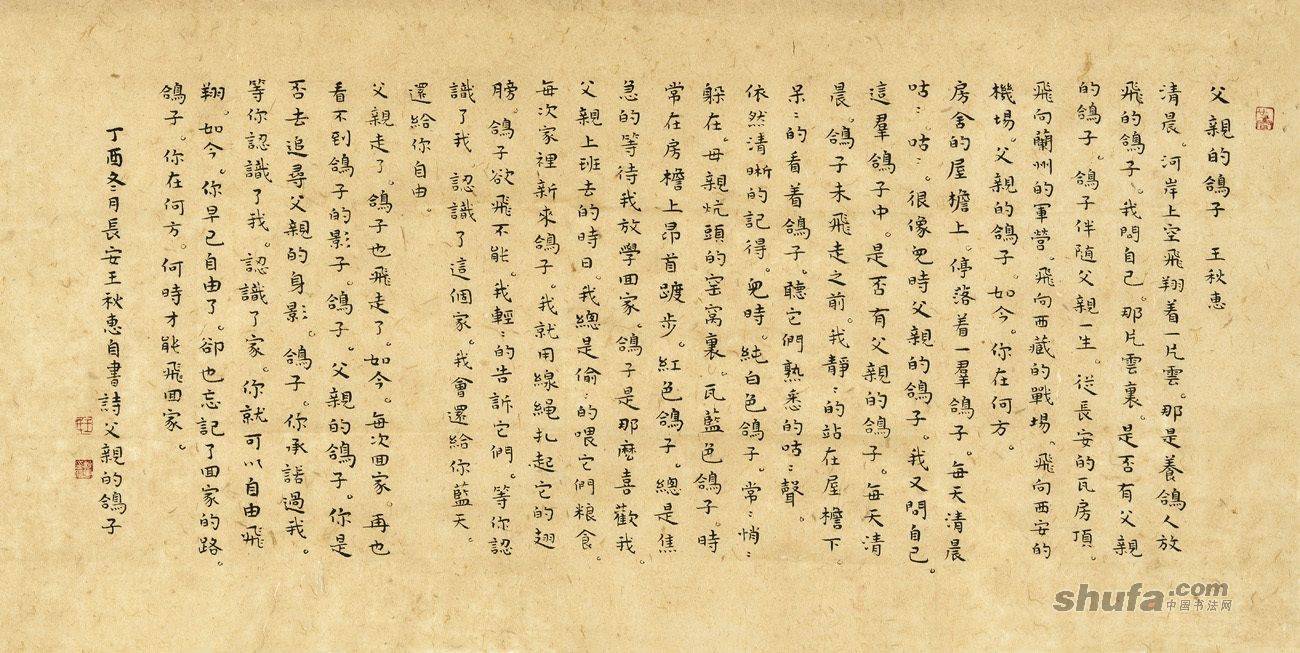 父親的鴿子 王秋惠
清晨。河岸上空飛翔着一片雲。那是養鴿人放
飛的鴿子。我問自己。那片雲裏。是否有父親
的鴿子。鴿子伴随父親一生。從長安的瓦房頂。
飛向蘭州的軍營。飛向西藏的戰場。飛向西安的
機場。父親的鴿子。如今。你在何方。
房舍的屋檐上。停落着一羣鴿子。每天清晨
咕:。咕:。很像兒時父親的鴿子。我又問自己。
這羣鴿子中。是否有父親的鴿子。每天清
晨。鴿子未飛走之前。我靜:的站在屋檐下
呆:的看着鴿子。聽它們熟悉的咕:聲。
依然清晰的記得。兒時。純白色鴿子。常:悄:
躲在。母親炕頭的窑窩裏。瓦藍色鴿子。時
常在房檐上昂首踱步。紅色鴿子。總是焦
急的等待我放學回家。鴿子是那麽喜歡我。
父親上班去的時日。我總是偷:的喂它們粮食。
每次家裡新來鴿子。我就用線繩扎起它的翅
膀。鴿子欲飛不能。我輕:的告訴它們。等你認
識了我 認識了這個家。我會還給你藍天。
還給你自由。
父親走了。鴿子也飛走了。如今。每次回家。再也
看不到鴿子的影子。鴿子。父親的鴿子。你是
否去追尋父親的身影。鴿子。你承諾過我。
等你認識了我。認識了家。你就可以自由飛
翔。如今。你早已自由了。卻也忘記了回家的路。
鴿子。你在何方。何時才能飛回家。
丁酉冬月長安王秋惠自書詩父親的鴿子
shufa.com
中国书法网